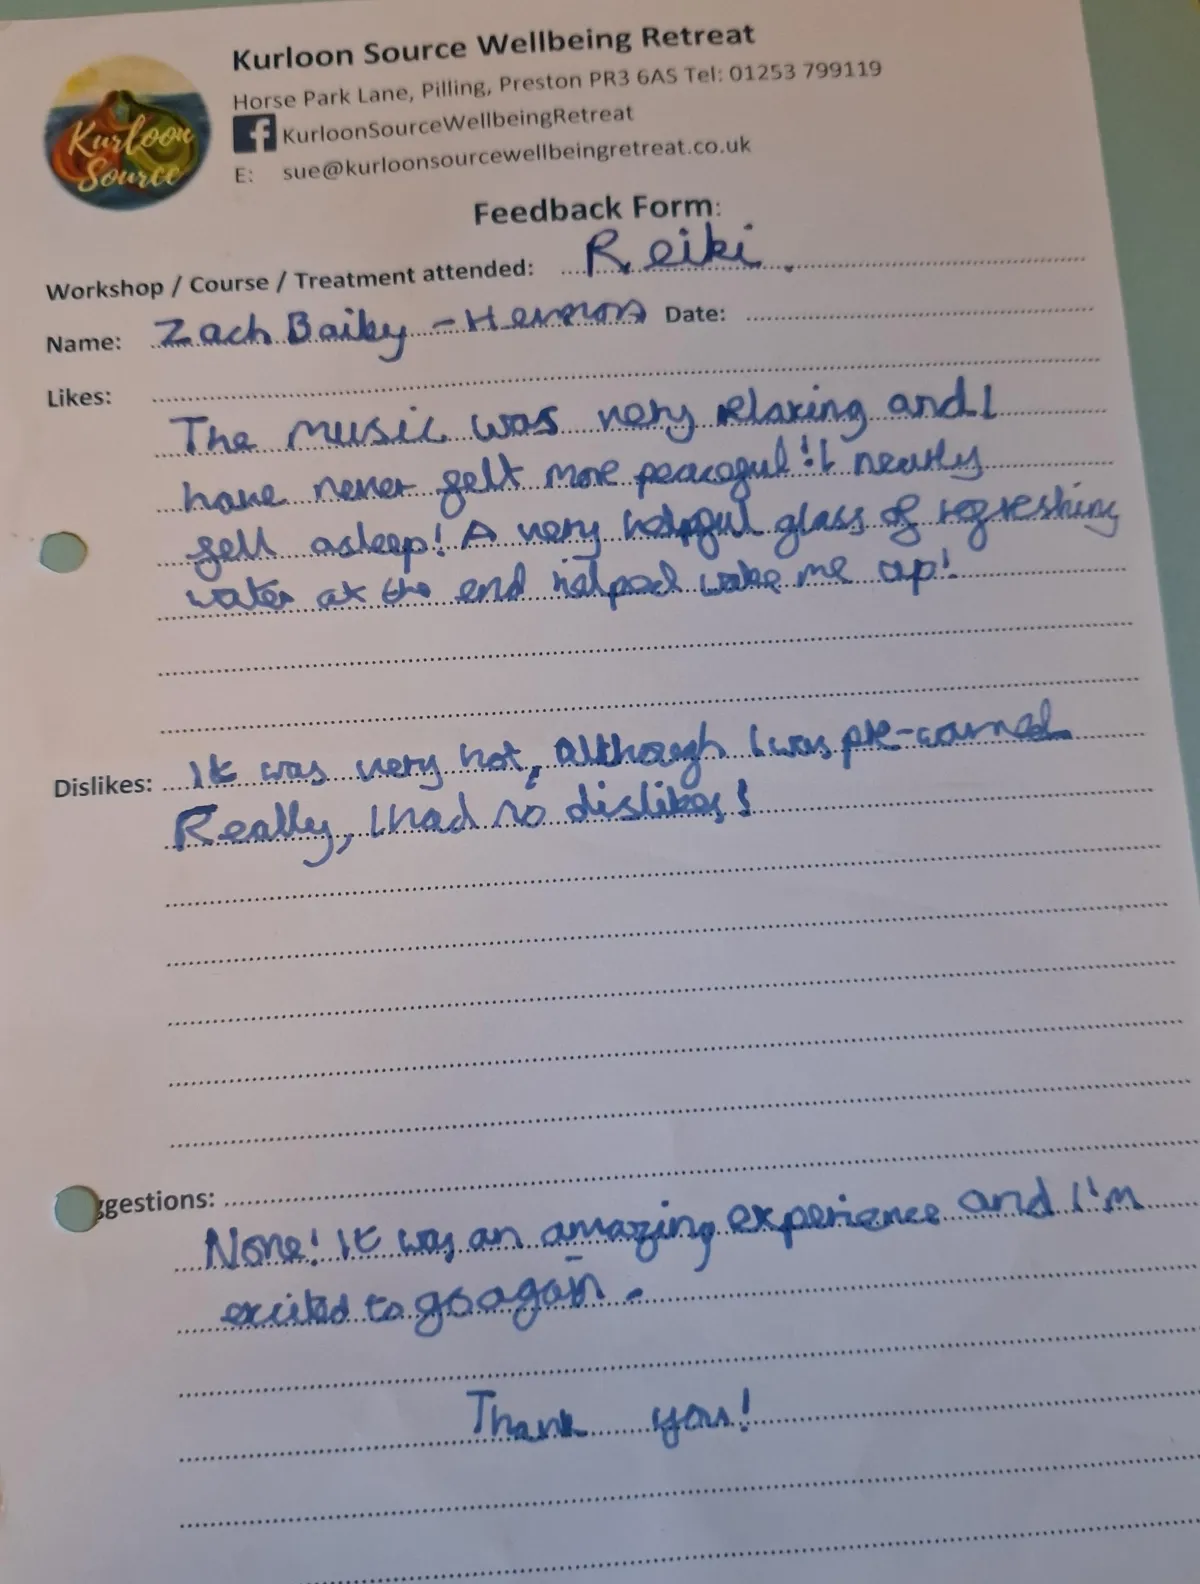 Kurloon Source
Kurloon Source Wellbeing Retreat
Horse Park Lane, Pilling, Preston PR3 6AS Tel: 01253 799119
KurloonSourceWellbeingRetreat
E: sue@kurloonsourcewellbeingretreat.co.uk
Feedback Form:
Workshop / Course / Treatment attended: Reiki
Name: Zach Baiky - Date:
Likes:
The music was very relaxing and I
have never felt more peaceful! I nearly
fell asleep! A very helpful glass of refreshing
water at the end helped wake me up!
Dislikes: It was very hot, although I was pre-warned
Really, I had no dislikes!
ggestions:
None! It was an amazing experience and I'm
excited to go again.
Thank you!